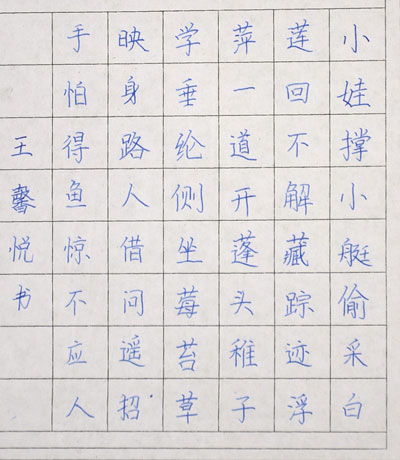 小娃撑小艇偷采白
莲回不解藏踪迹浮
萍一道开蓬头稚子
学垂纶侧坐莓苔草
映身路人借问遥招
手怕得鱼惊不应人
王馨悦书